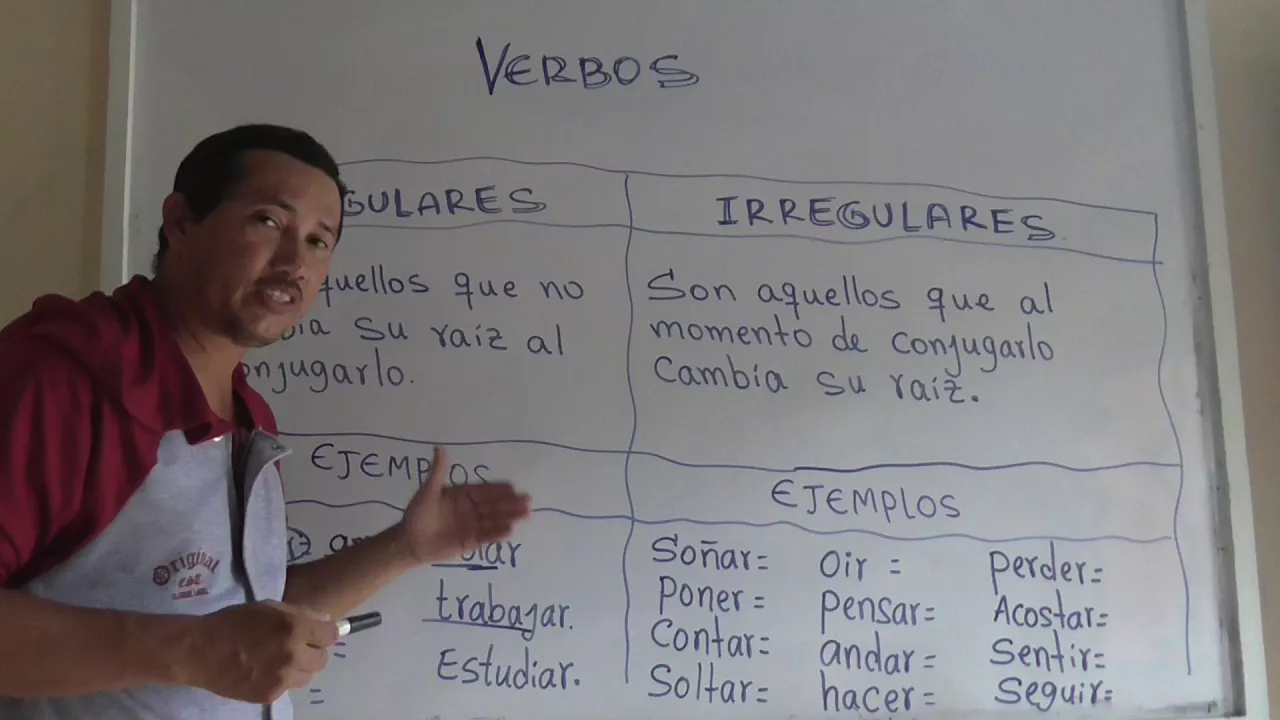 VERBOS
GULARES
quellos que no
ia su raíz al
onjugarlo.
EJEMPLOS
ar
trabajar.
=
Estudiar.
=
IRREGULARES
Son aquellos que al
momento de conjugarlo
Cambia su raíz.
EJEMPLOS
Soñar= Oir = perder=
Poner= pensar= Acostar=
Contar= andar= Sentir=
Soltar= hacer= Seguir=
Original